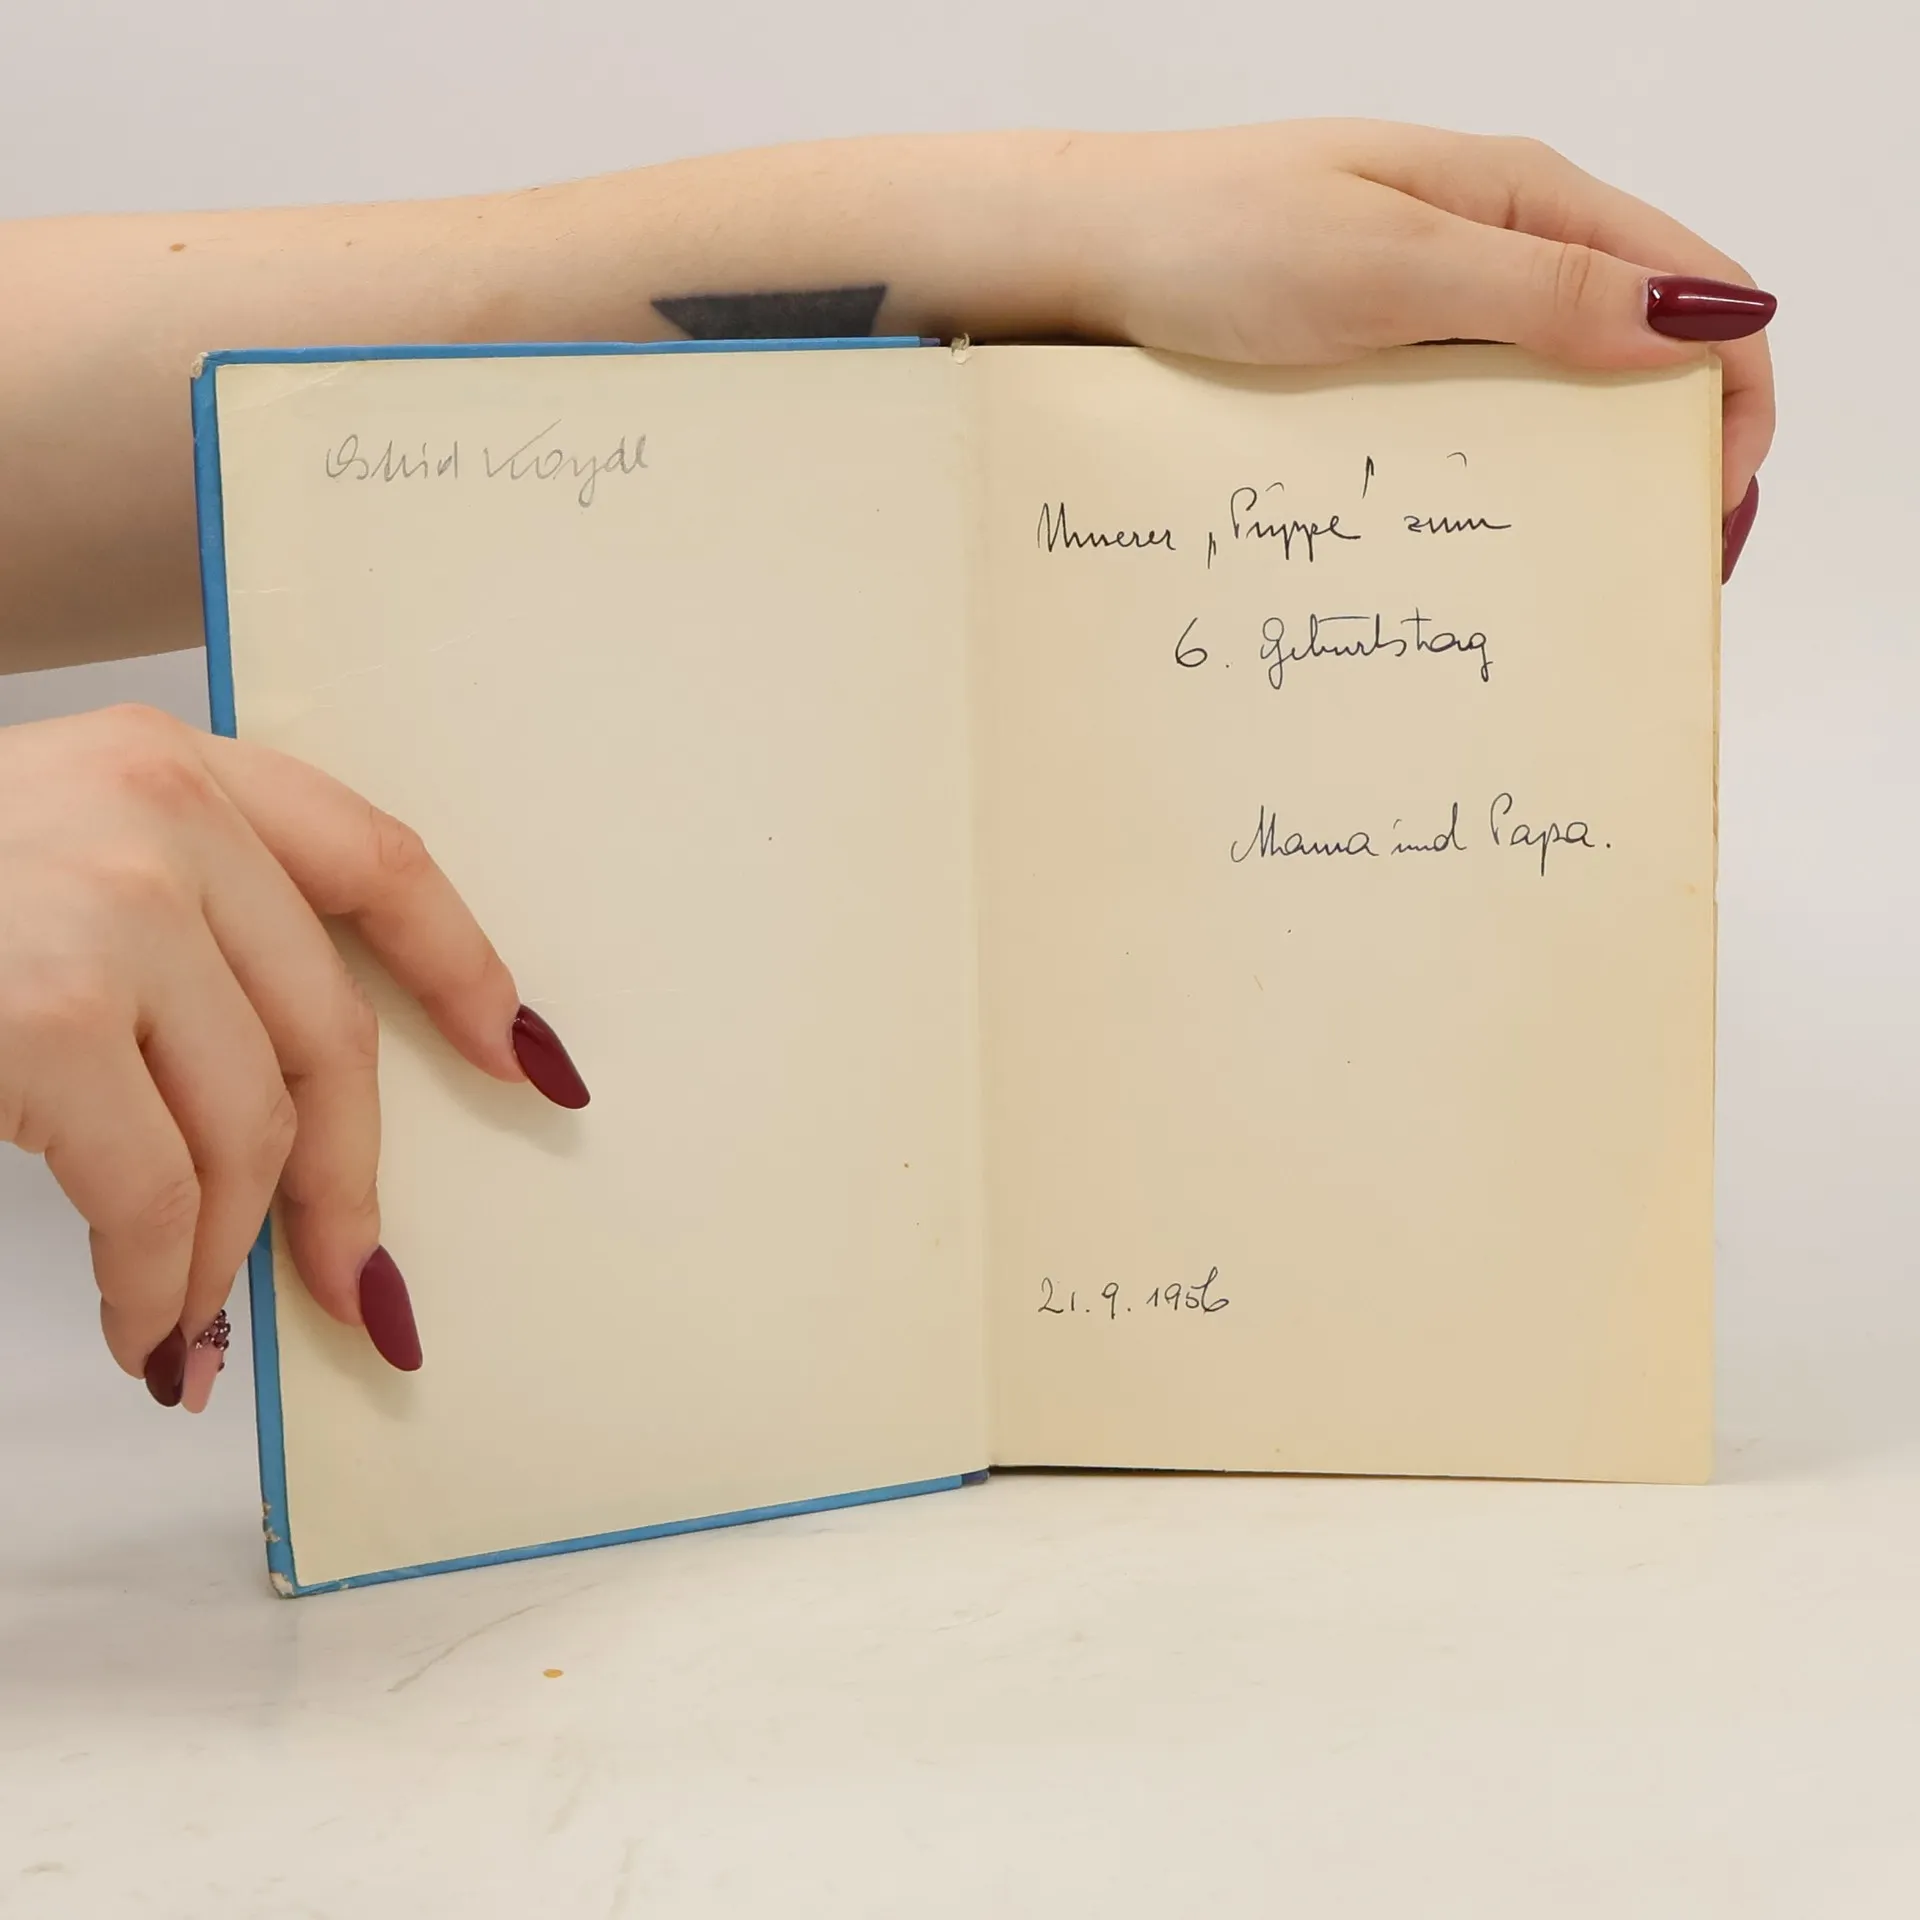 Astrid Koydl
Unserer „Puppe" zum
6. Geburtstag
Mama und Papa.
21.9.1956